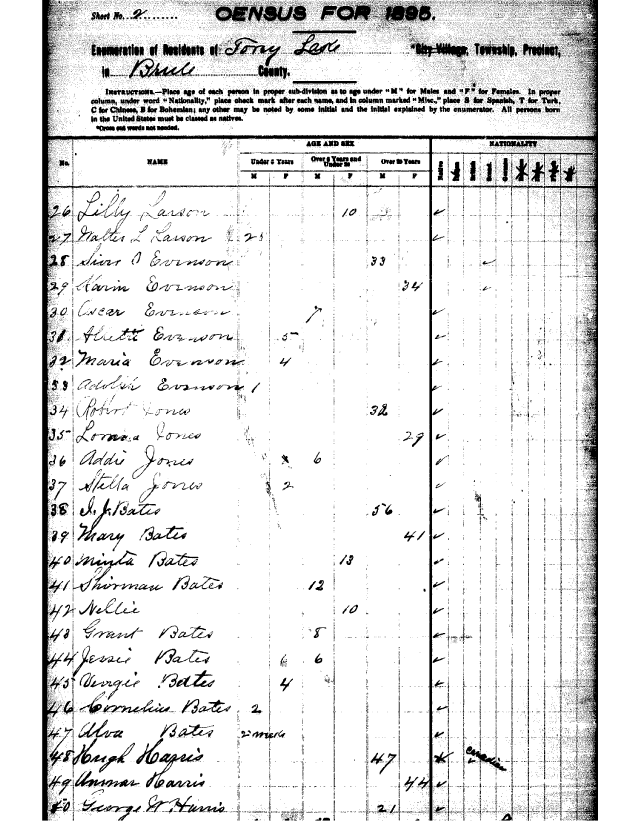 Sheet No. 2
CENSUS FOR 1895.
Enumeration of Residents of Tony Lake *City Village, Township, Precinct,
in Brule County.
INSTRUCTIONS.—Place age of each person in proper sub-division as to age under "M" for Males and "F" for Females. In proper
column, under word "Nationality," place check mark after each name, and in column marked "Misc.," place S for Spanish, T for Turk,
C for Chinese, B for Bohemian; any other may be noted by some initial and the initial explained by the enumerator. All persons born
in the United States must be classed as natives.
*Cross out words not needed.
AGE AND SEX NATIONALITY
No. NAME Under 5 Years Over 5 Years and Under 20 Over 20 Years Native
M F M F M F
26 Lilly Larson 10 ✓
27 Walter L Larson ✓
28 Evenson 33 ✓
29 Karin Evenson 34 ✓
30 Oscar Evenson 7 ✓
31 Evenson 5 ✓
32 Maria Evenson 4 ✓
33 Adolph Evenson 1 ✓
34 Robert Jones 32 ✓
35 Jones 29 ✓
36 Addie Jones 6 ✓
37 Stella Jones 2 ✓
38 I. J. Bates 56 ✓
39 Mary Bates 41 ✓
40 Minta Bates 13 ✓
41 Shirman Bates 12 ✓
42 Nellie 10 ✓
43 Grant Bates 8 ✓
44 Jessie Bates 6 6 ✓
45 Vergie Bates 4 ✓
46 Cornelius Bates 2 ✓
47 Alva Bates ✓
48 Hugh Harris 47 Canadian
49 Harris 44 ✓
50 George W. Harris 21 ✓